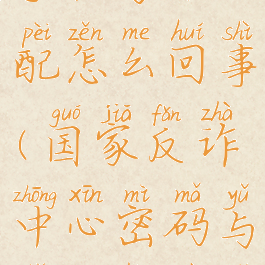 pèi zěn me huí shì
配怎么回事
guó jiā fǎn zhà
(国家反诈
zhōng xīn mì mǎ yǔ
中心密码与